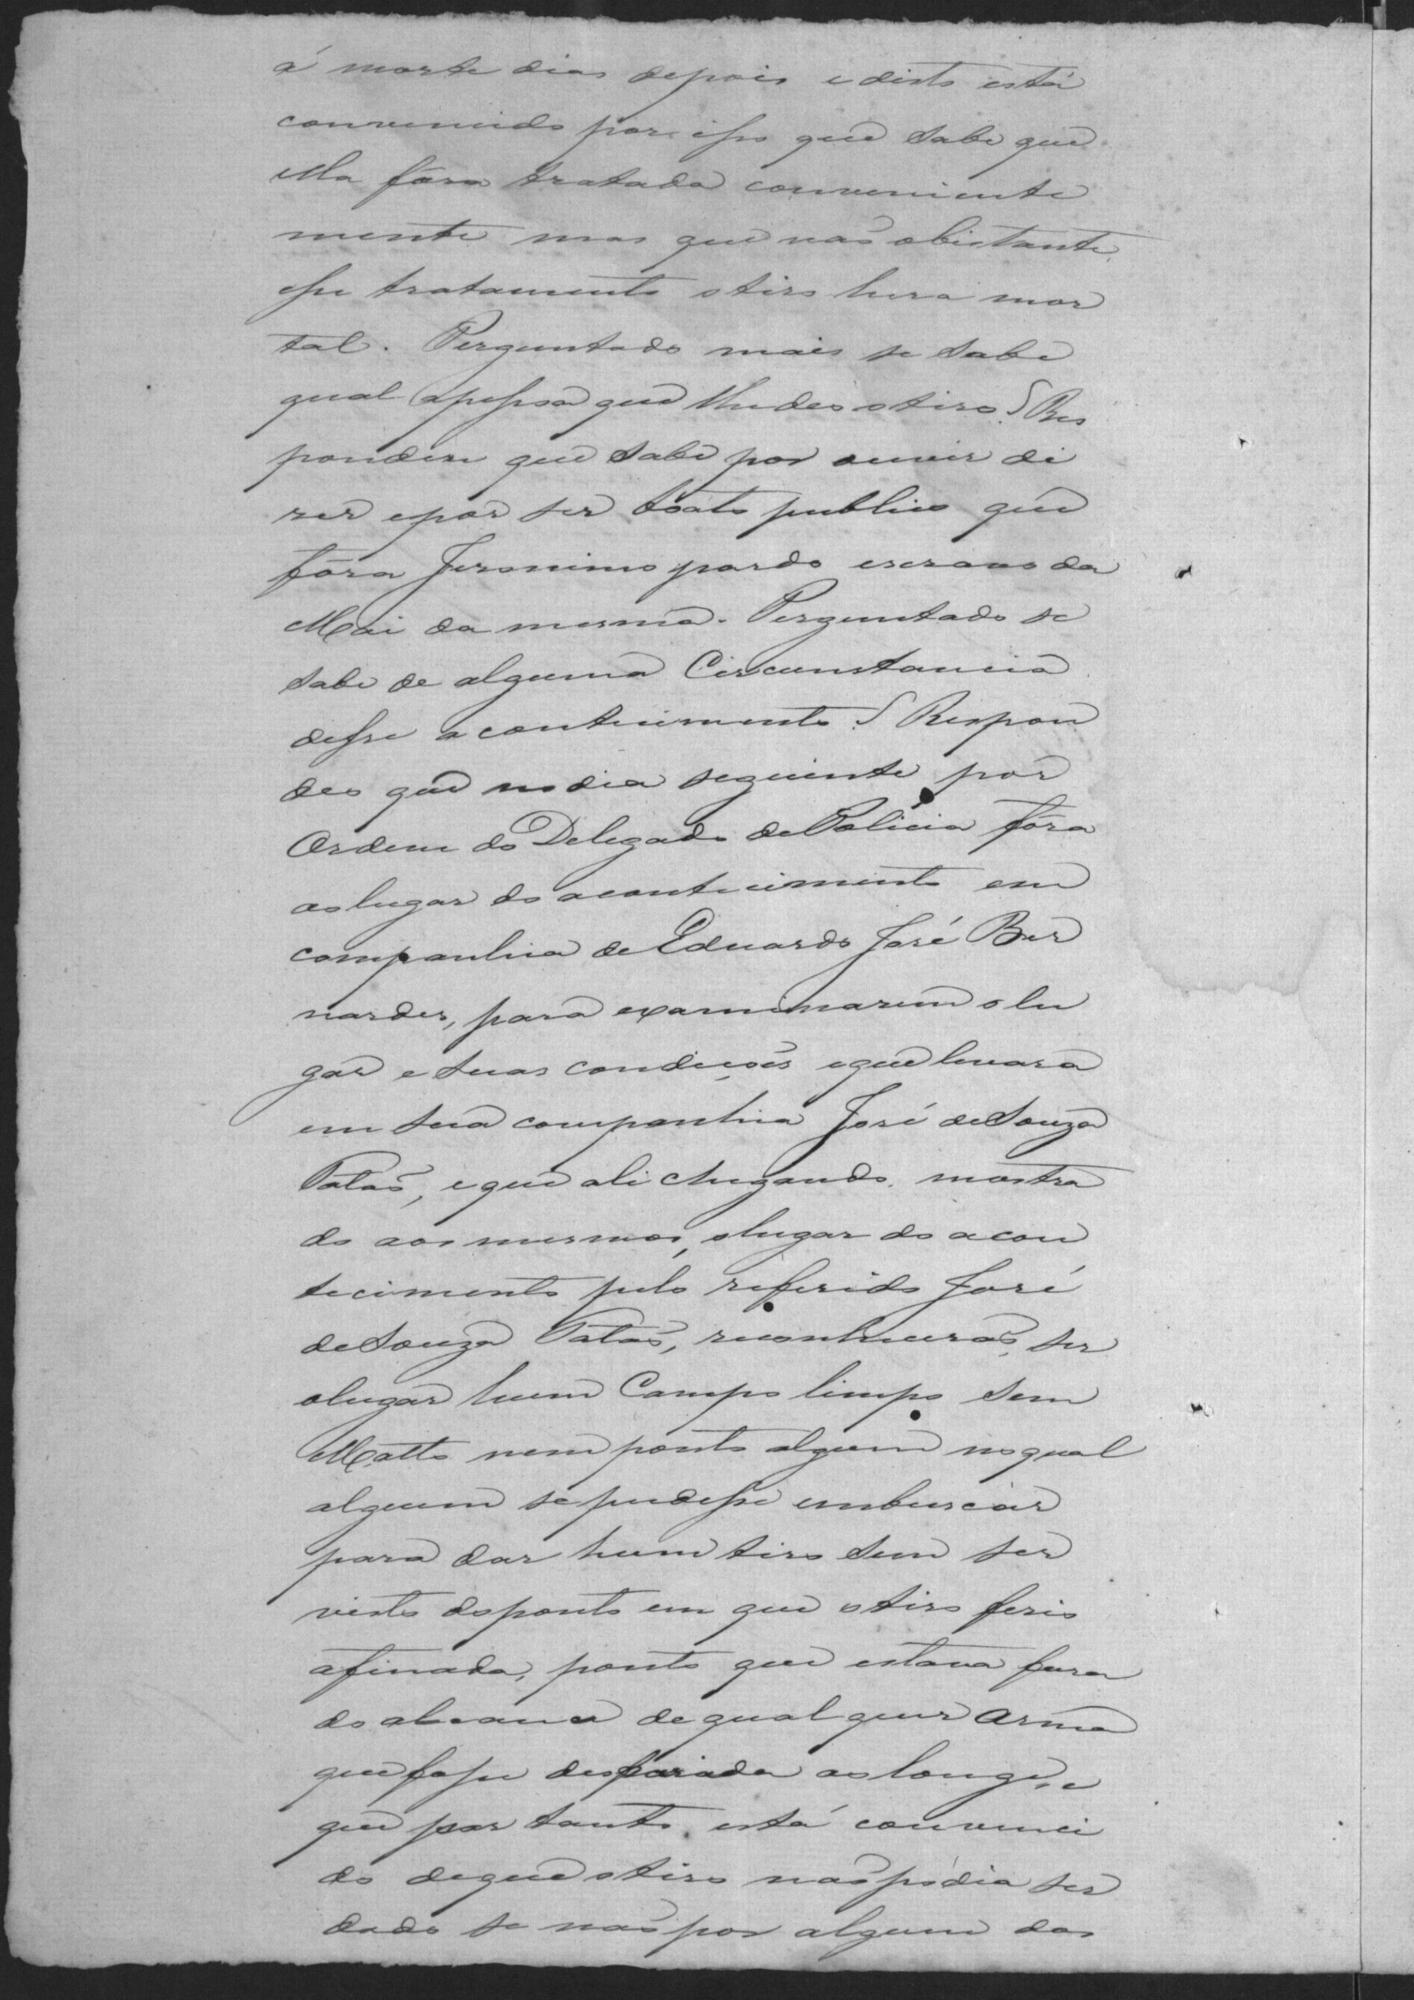 á morte dias depois e disto está
convencido por isso que sabe que
ella fôra tratada conveniente
mente mas que não obistante
esse tratamento o tiro hera mor
tal. Perguntado mais se sabe
qual a pessoa que lhe deo o tiro? Res
pondeu que sabe por ouvir di
zer e por ser boato publico que
fôra Jeronimo pardo escravo da
Mai da mesma. Perguntado se
sabe de alguma Circunstancia
desse acontecimento? Respon
deo que no dia seguinte por
Ordem do Delegado de Policia fôra
ao lugar do acontecimento em
companhia de Eduardo José Ber
nardes, para examinarem o lu
gar e suas condições e que levara
em sua companhia José de Souza
Patas, e que ali chegando mostra
do aos mesmos, o lugar do acon
tecimento pelo referido José
de Souza Patas, reconhecerão ser
o lugar hum Campo limpo sem
Matto nem ponto algum no qual
alguem se pudesse emboscar
para dar hum tiro sem ser
visto do ponto em que o tiro ferio
a finada, ponto que estava fora
do alcance de qualquer arma
que fosse desparada ao longe, e
que por tanto está convenci
do de que o tiro não podia ser
dado se não por algum dos